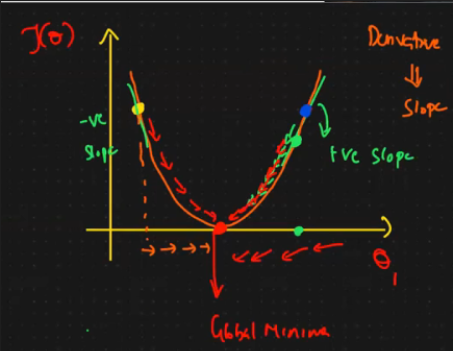 J(θ)
Derivative
⇓
Slope
-ve
slope
+ve slope
θ₁
Global Minima